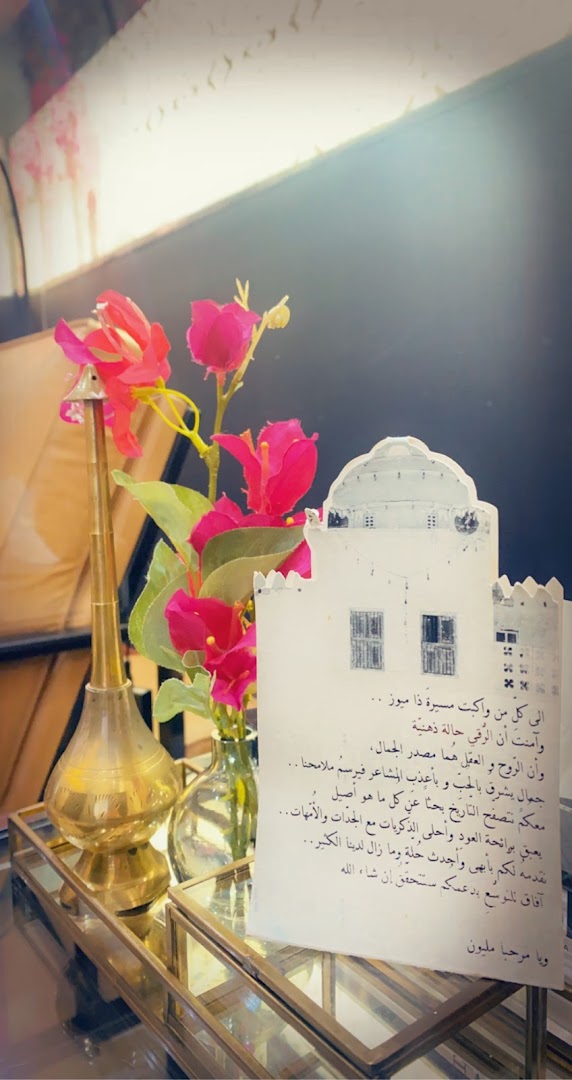 الى كل من واكبت مسيرة ذا ميوز ..
وآمنت أن الرُقي حالة ذهنيّة
وأن الرّوح و العقل هُما مصدر الجمال،
جمال يشرق بالحبّ و بأعذب المشاعر فيرسمُ ملامحنا ..
معكم نتصفح التاريخ بحثًا عن كل ما هو أصيل
يعبق برائحة العود وأحلى الذكريات مع الجدات والأمهات..
نقدمه لكم بأبهى وأجدد حُلّة وما زال لدينا الكثير..
آفاق للتوسع بدعمكم ستتحقق إن شاء الله
ويا مرحبا مليون